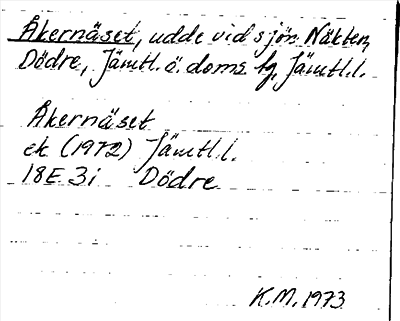 Åkernäset, udde vid sjön Näkten,
Dödre, Jämtl. ö. doms. tg, Jämtl. l.
Åkernäset
ek (1972) Jämtl l.
18E 3i Dödre
K.M. 1973